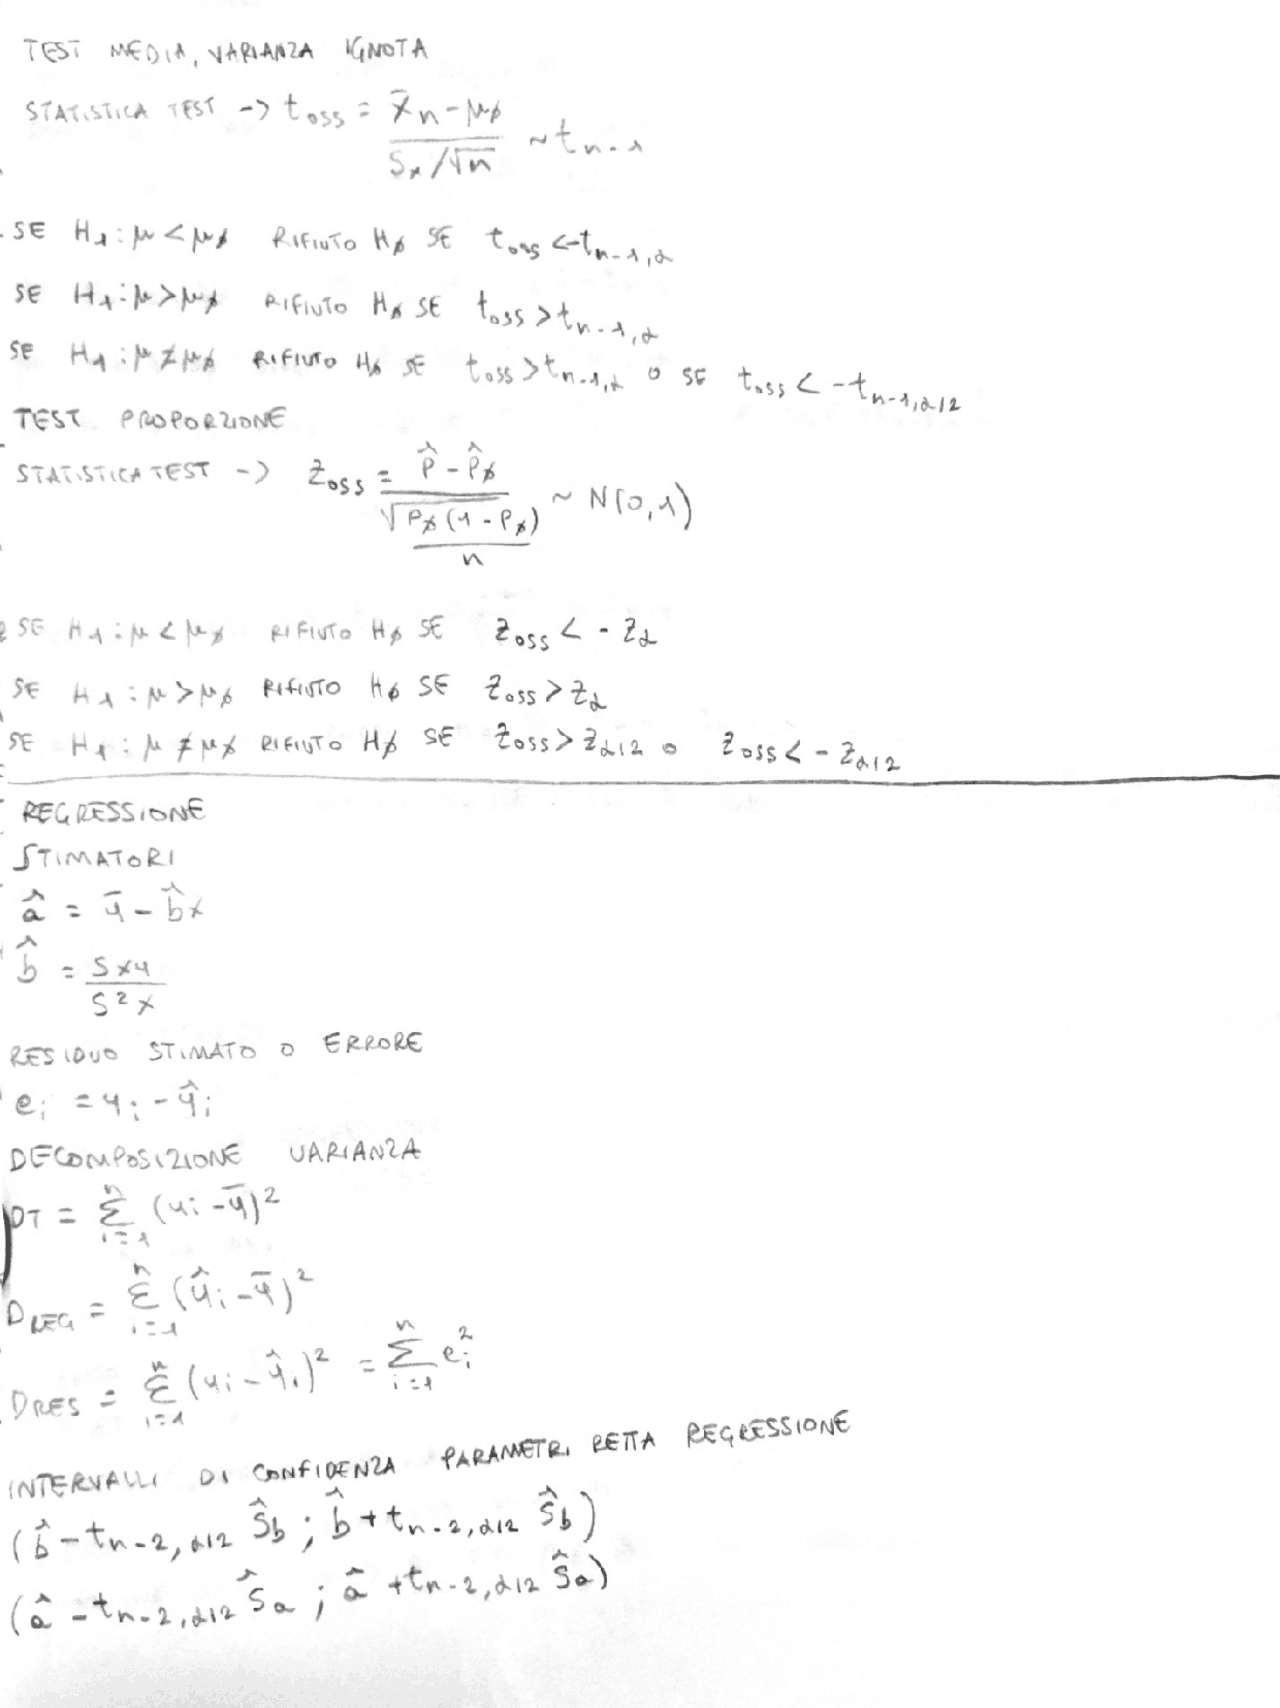 TEST MEDIA, VARIANZA IGNOTA
STATISTICA TEST -> t_oss = (x̄n - μ0) / (Sx/√n) ~ t_n-1
SE H1: μ < μ0 RIFIUTO H0 SE t_oss < -t_n-1,α
SE H1: μ > μ0 RIFIUTO H0 SE t_oss > t_n-1,α
SE H1: μ ≠ μ0 RIFIUTO H0 SE t_oss > t_n-1,α O SE t_oss < -t_n-1,α/2
TEST PROPORZIONE
STATISTICA TEST -> Z_oss = (p̂ - p̂0) / (√p0(1-p0) / n) ~ N(0,1)
SE H1: μ < μ0 RIFIUTO H0 SE Z_oss < -Z_α
SE H1: μ > μ0 RIFIUTO H0 SE Z_oss > Z_α
SE H1: μ ≠ μ0 RIFIUTO H0 SE Z_oss > Z_α/2 O Z_oss < -Z_α/2
REGRESSIONE
STIMATORI
â = ȳ - b̂x
b̂ = Sxy / S²x
RESIDUO STIMATO O ERRORE
e_i = y_i - ŷ_i
DECOMPOSIZIONE VARIANZA
DT = Σ_{i=1}^{n} (y_i - ȳ)²
D_REG = Σ_{i=1}^{n} (ŷ_i - ȳ)²
D_RES = Σ_{i=1}^{n} (y_i - ŷ_i)² = Σ_{i=1}^{n} e_i²
INTERVALLI DI CONFIDENZA PARAMETRI RETTA REGRESSIONE
(b̂ - t_n-2,α/2 Ŝb ; b̂ + t_n-2,α/2 Ŝb)
(â - t_n-2,α/2 Ŝa ; â + t_n-2,α/2 Ŝa)